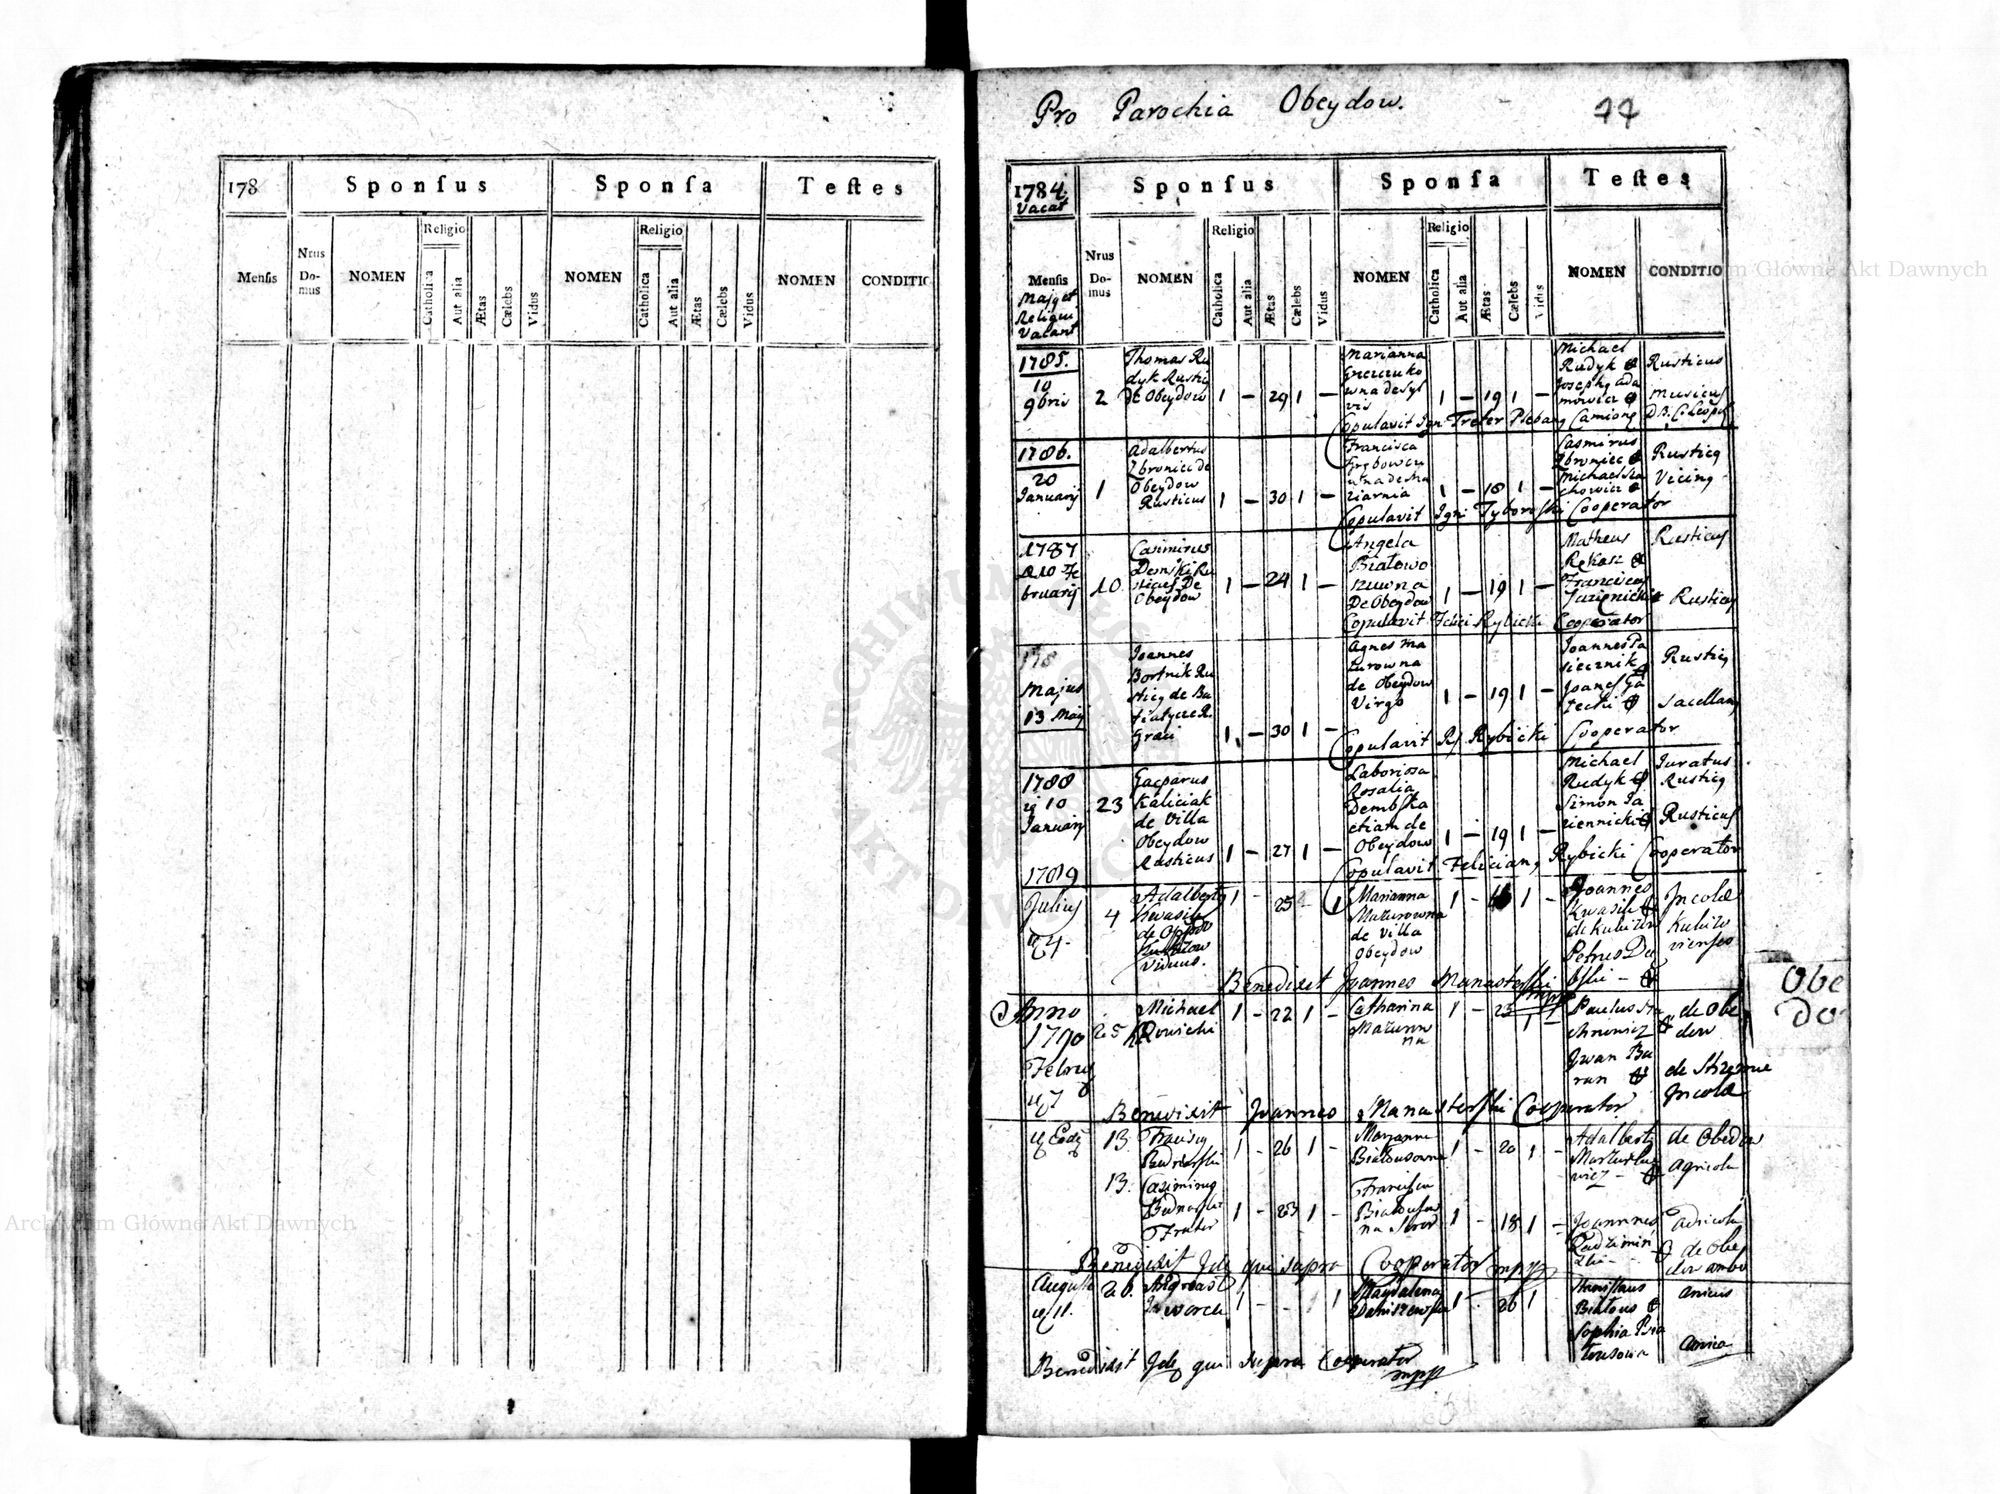 178
Sponſus
Sponſa
Teſtes
Menſis
Nrus
Do-
mus
NOMEN
Religio
Catholica
Aut alia
Ætas
Cælebs
Vidus
NOMEN
Religio
Catholica
Aut alia
Ætas
Cælebs
Vidus
NOMEN
CONDITIO
Pro Parochia Obeydow.
44
1784.
Vacat
Sponſus
Sponſa
Teſtes
Menſis
Majq et
Reliqui
Vacant
Nrus
Do-
mus
NOMEN
Religio
Catholica
Aut alia
Ætas
Cælebs
Vidus
NOMEN
Religio
Catholica
Aut alia
Ætas
Cælebs
Vidus
NOMEN
CONDITIO
1785.
10
9bris
2
Thomas Ru
dyk Rustiq
de Obeydow
1 – 29 1 –
Marianna
wna de Syl
vis
1 – 19 1 –
Michael
Rudyk
Josephq Ada
mowicz
Rusticus
Musicus
Copulavit Ign Treter Plebanq Camionq
1786.
20
Januarij
1
Adalbertus
Zbroniec de
Obeydow
Rusticus
1 – 30 1 –
Francisca
Grębowcu
wna de Sta
ziarnia
1 – 18 1 –
Casmirus
Zbroniec
Michael Sta
chowicz
Rusticq
Vicinq
Copulavit Igni Tyboroski Cooperator
1787
10 Fe
bruarij
10
Casimirus
Demski Ru
sticus De
Obeydow
1 – 24 1 –
Angela
Białowo
zuwna
De Obeydow
1 – 19 1 –
Matheus
Rękasz
Franciscus
Jazienicki
Rusticus
Rusticus
Copulavit Felici Rybicki Cooperator
178
Majus
13 Maij
Joannes
Bortnik Ru
sticq de Bu
tiatycze R.
Graci
1 – 30 1 –
Agnes Ma
zurowna
de Obeydow
Virgo
1 – 19 1 –
Joannes Pa
siecznik
Joanes Ga
łecki
Rusticq
Sacellanq
Copulavit Rf Rybicki Cooperator
1788
10
Januarij
23
Gasparus
Kaliciak
de Villa
Obeydow
Rusticus
1 – 27 1 –
Laboriosa
Rosalia
Dembska
etiam de
Obeydow
1 – 19 1 –
Michael
Rudyk
Simon Ja
ziennicki
Juratus
Rusticq
Rusticus
Copulavit Felicianq Rybicki Cooperator
1789
Julius
24
4
Adalbertq
Kwasik
Viduus.
1 – 25 – 1
Marianna
Mazurowna
de Villa
Obeydow
1 – 1 –
Joannes
Kwasik
de Kulizow
Petrus Du
bski
Incolæ
Kulizo
vienses
Benedixit Joannes Manasterski
mpp
Anno
1790
Febru
7
25
Michael
Rowicki
1 – 22 1 –
Catharina
Mazurow
na
1 – 23
1 –
Paulus Sta
chnowicz
Iwan Ba
ran
de Obe
dow
de Streme
Incolæ
Obe
do
Benedixit Joannes Manasterski Cooperator
Eod
13
Francisq
Bednarski
1 – 26 1 –
Maryanna
Białousowna
1 – 20 1 –
Adalbertq
de Obedow
Agricola
13.
Casimirus
Bednarski
Frater
1 – 23 1 –
Francisca
na Soror
1 – 18 1 –
Joannes
Radzimin
ski
Agricola
de Obey
dow ambo
Benedixit Ide qui supra Cooperator mpp
Auguste
11.
26.
Andreas
Jaworek
1 – – 1
Magdalena
Daniszewska
1 – 26 1
Stanislaus
Białous
Sophia Bia
łousowa
amicus
amica
Benedixit Ide qui supra Cooperator
mpp
Archiwum Główne Akt Dawnych
Archiwum Główne Akt Dawnych
ARCHIWUM GŁÓWNE AKT DAWNYCH